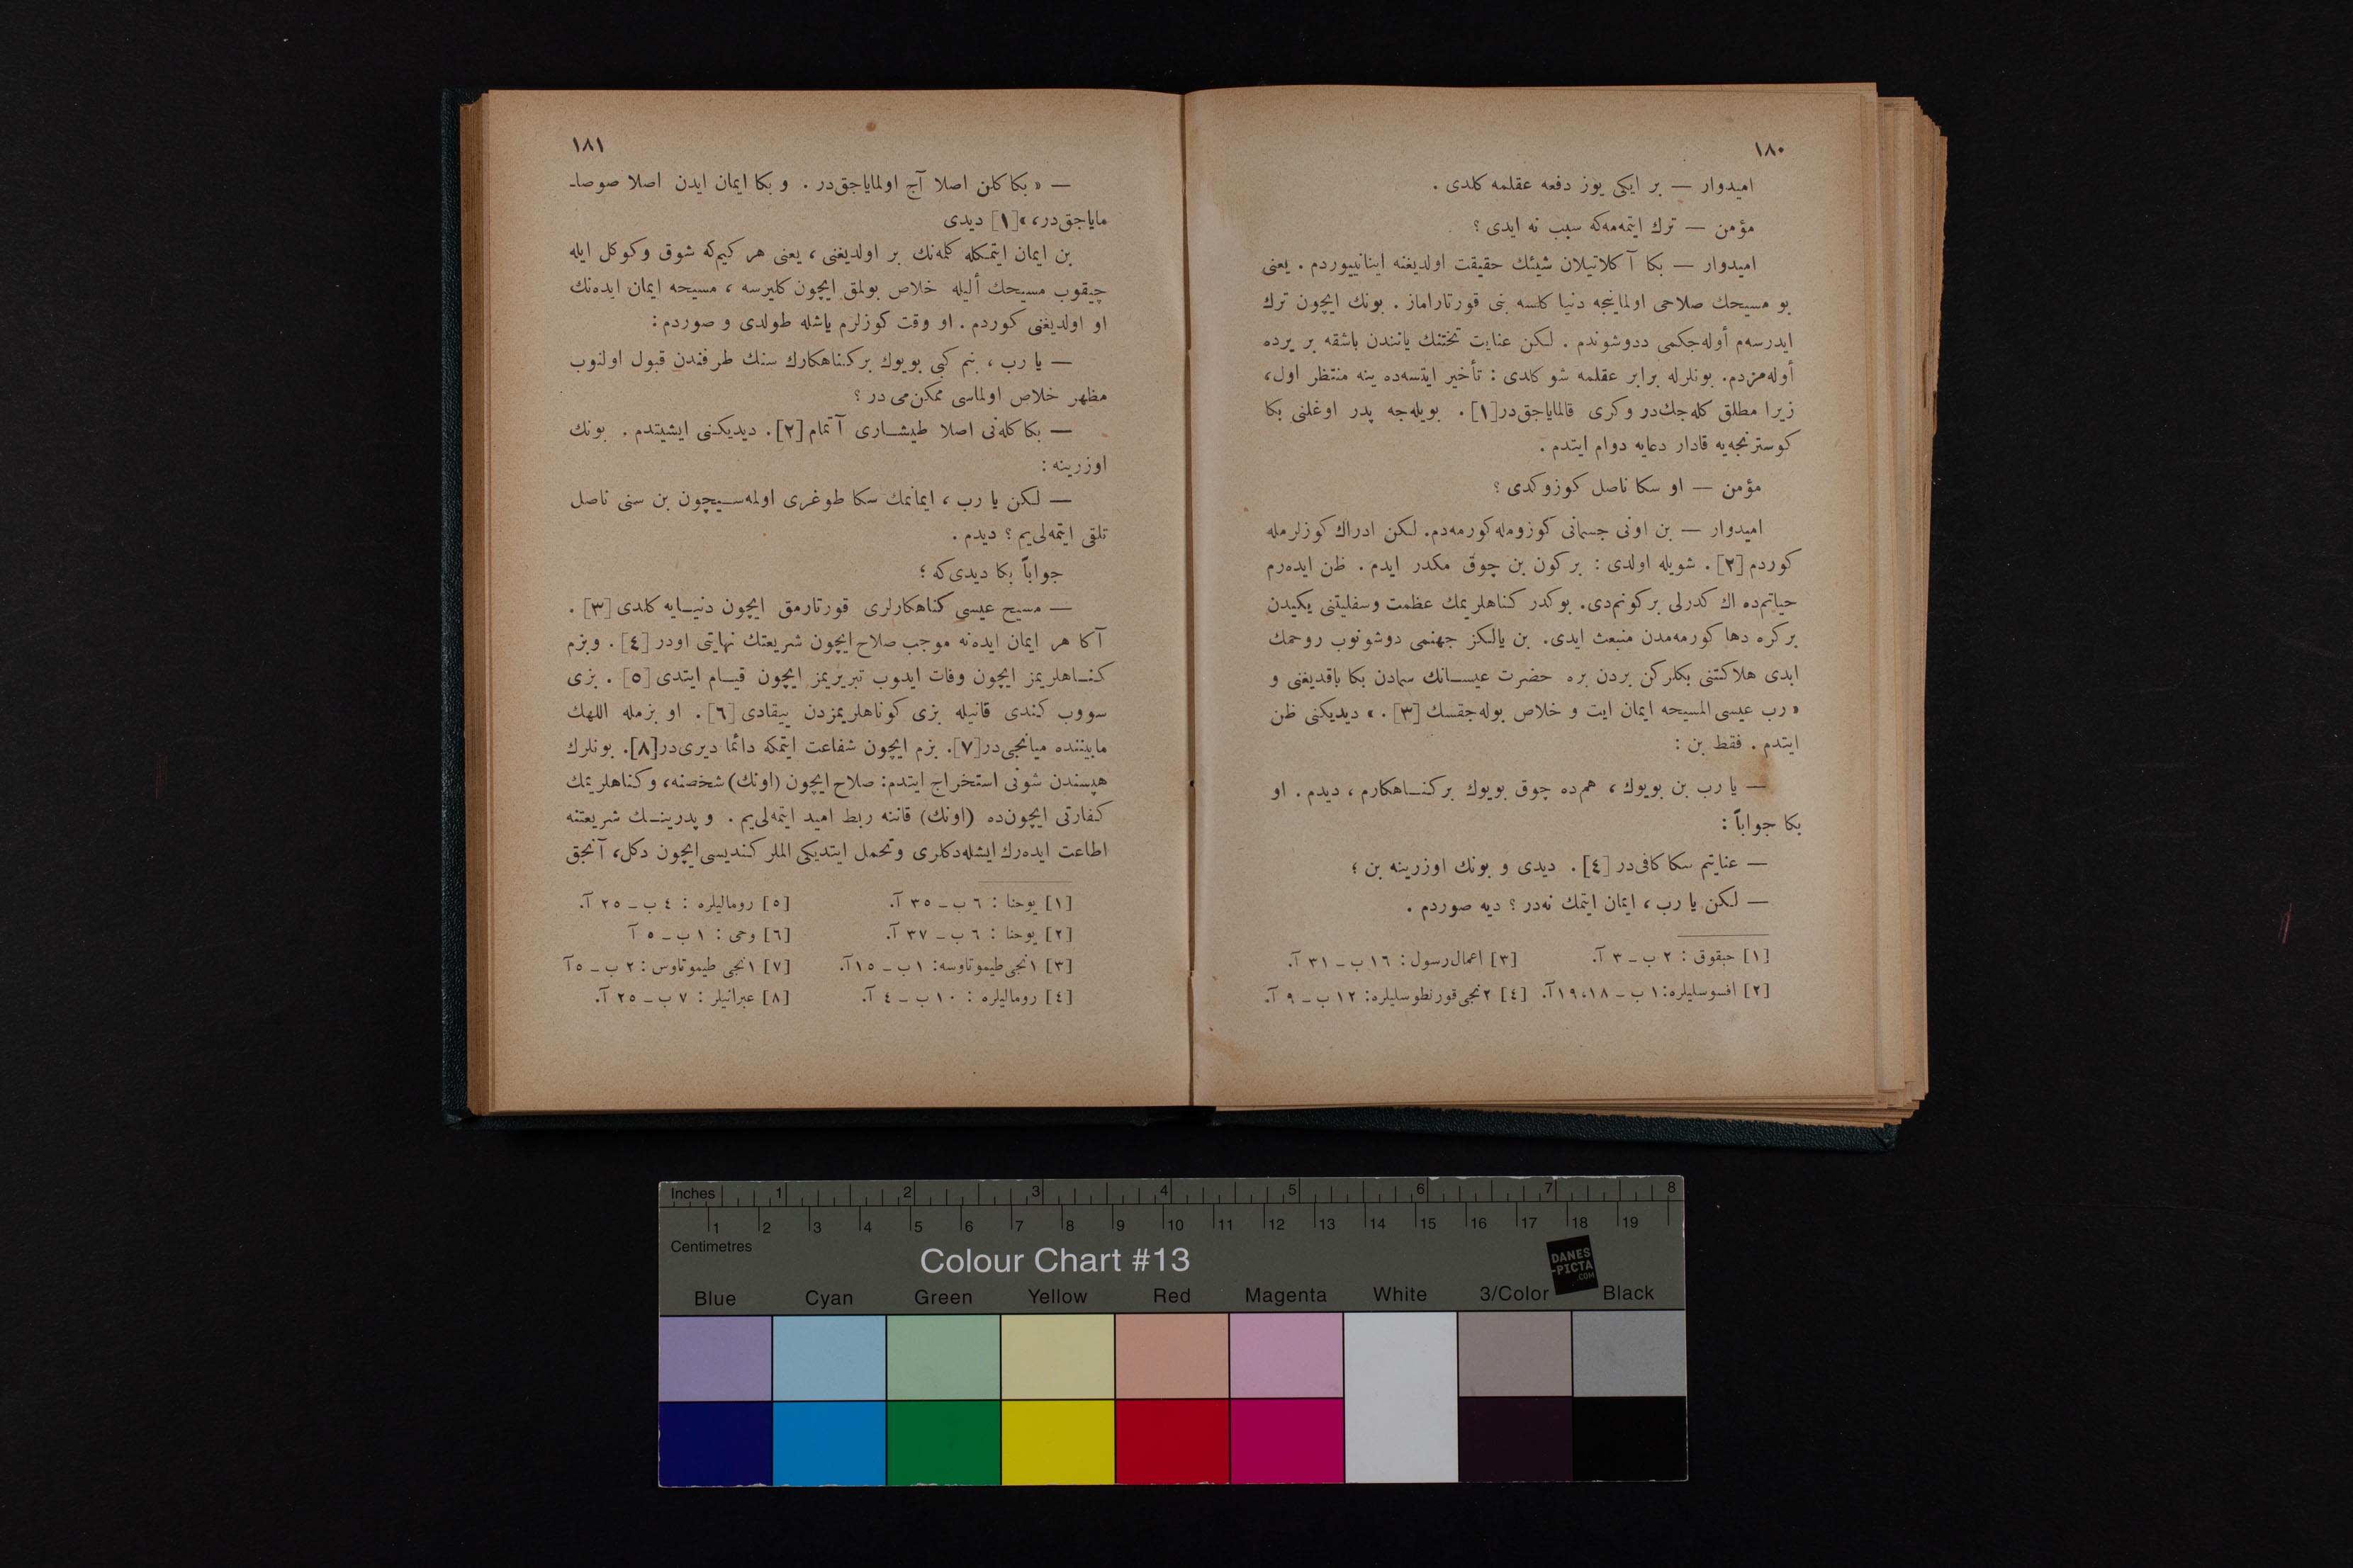 ١٨٠
اميدوار — بر ايكى يوز دفعه عقلمه كلدى .
مؤمن — ترك ايتمه‌مه‌كه سبب نه ايدى ؟
اميدوار — بكا آكلاتيلان شيئك حقيقت اولديغنه اينانييوردم . يعنى
بو مسيحك صلاحى اولماينجه دنيا كلسه بنى قورتاراماز . بونك ايچون ترك
ايدرسه‌م أوله‌جكمى ددوشوندم . لكن عنايت تختنك ياننده‌ن باشقه بر يرده
أوله‌مزدم. بونلرله برابر عقلمه شو كلدى : تأخير ايتسه‌ده ينه منتظر اول،
زيرا مطلق كله‌جك‌در وكرى قالماياجق‌در[١] . بويله‌جه پدر اوغلنى بكا
كوسترنجه‌يه قادار دعايه دوام ايتدم .
مؤمن — او سكا ناصل كوزوكدى ؟
اميدوار — بن اونى جسمانى كوزومله كورمه‌دم. لكن ادراك كوزلرمله
كوردم [٢] . شويله اولدى : بر كون بن چوق مكدر ايدم . ظن ايده‌رم
حياتم‌ده اك كدرلى بر كونم‌دى. بو كدر كناهلريمك عظمت وسفليتنى يكيدن
بر كره دها كورمه‌مدن منبعث ايدى. بن يالكز جهنمى دوشونوب روحمك
ابدى هلاكتنى بكلركن بردن بره حضرت عيسـانك سمادن بكا باقديغنى و
« رب عيسى المسيحه ايمان ايت و خلاص بوله‌جقسك [٣] . » ديديكنى ظن
ايتدم . فقط بن :
— يا رب بن بويوك ، هم‌ده چوق بويوك بر كنـاهكارم ، ديدم . او
بكا جواباً :
— عنايتم سكا كافى‌در [٤] . ديدى و بونك اوزرينه بن ؛
— لكن يا رب ، ايمان ايتمك نه‌در ؟ ديه صوردم .
[١] حبقوق : ٢ ب – ٣ آ.
[٣] اعمال‌رسول : ١٦ ب – ٣١ آ.
[٢] افسوسليلره: ١ ب – ١٩،١٨ آ.
[٤] ٢نجى قورنطوسليلره: ١٢ ب – ٩ آ.
١٨١
— « بكا كلن اصلا آج اولماياجق‌در . و بكا ايمان ايدن اصلا صوصا-
ماياجق‌در، »[١] ديدى
بن ايمان ايتمكله كلمه‌نك بر اولديغنى ، يعنى هر كيم‌كه شوق وكوكل ايله
چيقوب مسيحك أليله خلاص بولمق ايچون كليرسه ، مسيحه ايمان ايده‌نك
او اولديغنى كوردم . او وقت كوزلرم ياشله طولدى و صوردم :
— يا رب ، بنم كبى بويوك بر كناهكارك سنك طرفندن قبول اولنوب
مظهر خلاص اولماسى ممكن‌مى در ؟
— بكا كله‌نى اصلا طيشـارى آتمام [٢] . ديديكنى ايشيتدم . بونك
اوزرينه :
— لكن يا رب ، ايمانمك سكا طوغرى اولمه‌سـيچون بن سنى ناصل
تلقى ايتمه‌لى‌يم ؟ ديدم .
جواباً بكا ديدى‌كه ؛
— مسيح عيسى كناهكارلرى قورتارمق ايچون دنيـايه كلدى [٣] .
آكا هر ايمان ايده‌نه موجب صلاح ايچون شريعتك نهايتى اودر [٤] . وبزم
كنـاهلريمز ايچون وفات ايدوب تبريزيمز ايچون قيـام ايتدى [٥] . بزى
سووب كندى قانيله بزى كوناهلريمزدن ييقادى [٦] . او بزمله اللهك
مابيننده ميانجى‌در[٧]. بزم ايچون شفاعت ايتمكه دائما ديرى‌در[٨]. بونلرك
هپسندن شونى استخراج ايتدم: صلاح ايچون (اونك) شخصنه، وكناهلريمك
كفارتى ايچون‌ده (اونك) قاننه ربط اميد ايتمه‌لى‌يم . و پدرينـك شريعتنه
اطاعت ايده‌رك ايشله‌دكلرى وتحمل ايتديكى الملر كنديسى ايچون دكل، آنجق
[١] يوحنا : ٦ ب – ٣٥ آ.
[٥] روماليلره : ٤ ب – ٢٥ آ.
[٢] يوحنا : ٦ ب – ٣٧ آ.
[٦] وحى : ١ ب – ٥ آ
[٣] ١نجى طيموتاوسه: ١ ب – ١٥ آ.
[٧] ١نجى طيموتاوس: ٢ ب – ٥ آ
[٤] روماليلره : ١٠ ب – ٤ آ.
[٨] عبرانيلر : ٧ ب – ٢٥ آ.
Inches 1 2 3 4 5 6 7 8
1 2 3 4 5 6 7 8 9 10 11 12 13 14 15 16 17 18 19
Centimetres
Colour Chart #13
DANES
-PICTA
.COM
Blue Cyan Green Yellow Red Magenta White 3/Color Black